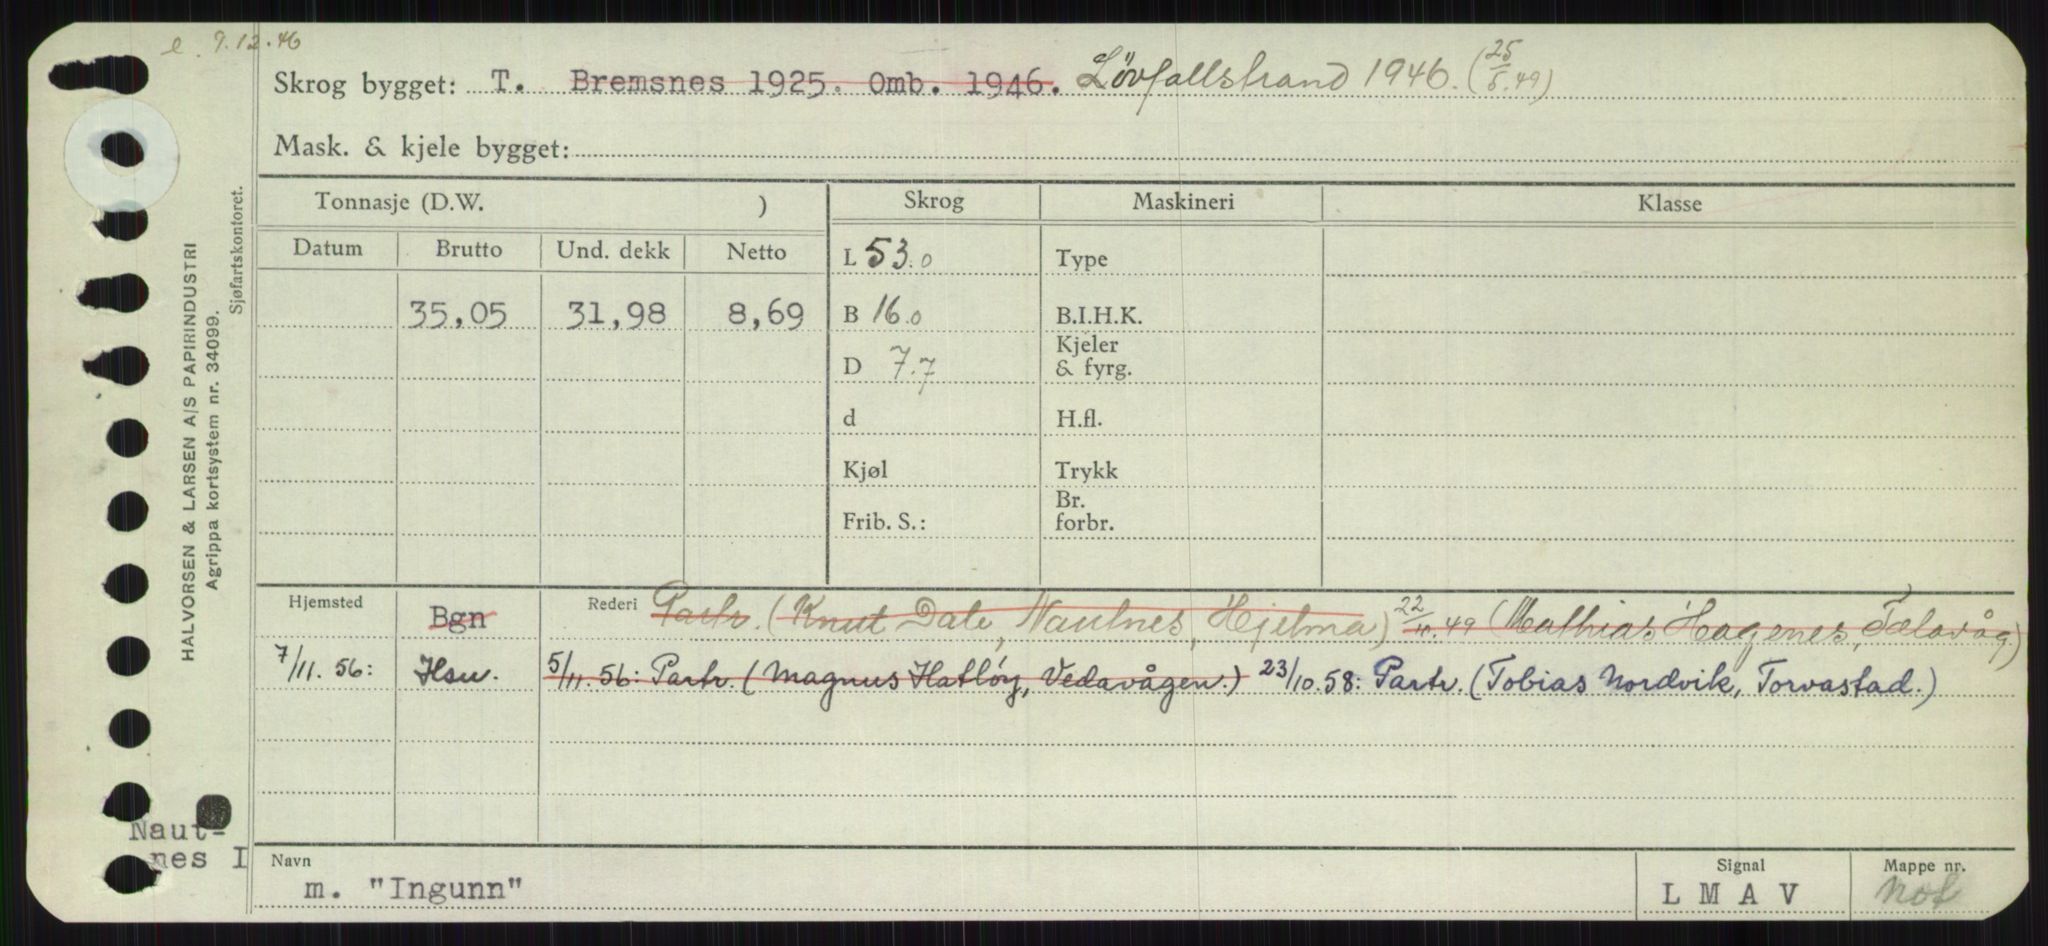 e 9.12.46
Skrog bygget: T. Bremsnes 1925. Omb. 1946. Løvfallstrand 1946. (25/5.49)
Mask. & kjele bygget:
Tonnasje (D.W. ) Skrog Maskineri Klasse
Datum Brutto Und. dekk Netto L 53.0 Type
35,05 31,98 8,69 B 16.0 B.I.H.K.
D 7.7 Kjeler & fyrg.
d H.fl.
Kjøl Trykk
Frib. S.: Br. forbr.
Hjemsted Bgn Rederi Partr. (Knut Dale, Nautnes, Hjelma) 22/11.49 (Mathias Hagenes, Telavåg)
7/11.56: Hsu. 5/11.56: Partr. (Magnus Hatløy, Vedavågen.) 23/10.58: Partr. (Tobias Nordvik, Torvastad.)
Naut-
nes I
Navn Signal Mappe nr.
m. "Ingunn" L M A V Not
HALVORSEN & LARSEN A/S PAPIRINDUSTRI
Agrippa kortsystem nr. 34099.
Sjøfartskontoret.